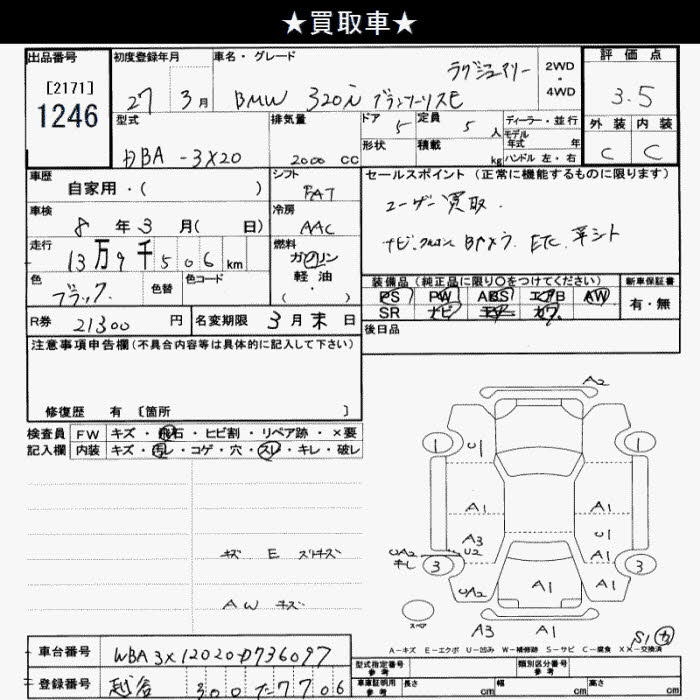 ★買取車★
出品番号 初度登録年月 車名・グレード 評価点
[2171]
1246
27 3月 BMW 320i グランツーリスモ ラグジュアリー 2WD・4WD 3.5
型式 排気量 ドア 定員 ディーラー・並行 外装 内装
DBA-3X20 2000 CC 5 5人 モデル年式 年 C C
形状 積載 kg ハンドル 左・右
車歴 シフト セールスポイント (正常に機能するものに限ります)
自家用・( ) FAT
ユーザー買取.
車検 冷房
8年3月( 日) AAC
ナビ. クルコン Bカメラ. ETC. 革シート
走行 燃料
13万9千506km ガソリン
軽油・( )
色 色替 色コード
ブラック.
装備品 (純正品に限り○をつけてください) 新車保証書
PS PW ABS エアB AW 有・無
SR ナビ TV カワ
R券 21300円 名変期限 3月末日
後日品
注意事項申告欄 (不具合内容等は具体的に記入して下さい)
修復歴 有 [箇所 ]
検査員 FW キズ・飛石・ヒビ割・リペア跡・×要
記入欄 内装 キズ・汚レ・コゲ・穴・スレ・キレ・破レ
A2
1 U1 1
A1 A1
A3 U1
UA2 U2 A1
キレ 3 3
UA2 A1 A1
キズ E スリキズ
AW キズ
スペア
A3 A1
S1
A-キズ E-エクボ U-凹み W-補修跡 S-サビ C-腐食 XX-交換済
車台番号 WBA3X12020D736097
登録番号 越谷 300 た 7706
型式指定番号 参考 類別区分番号 参考
車庫証明用 参考 長さ cm 幅 cm 高さ cm